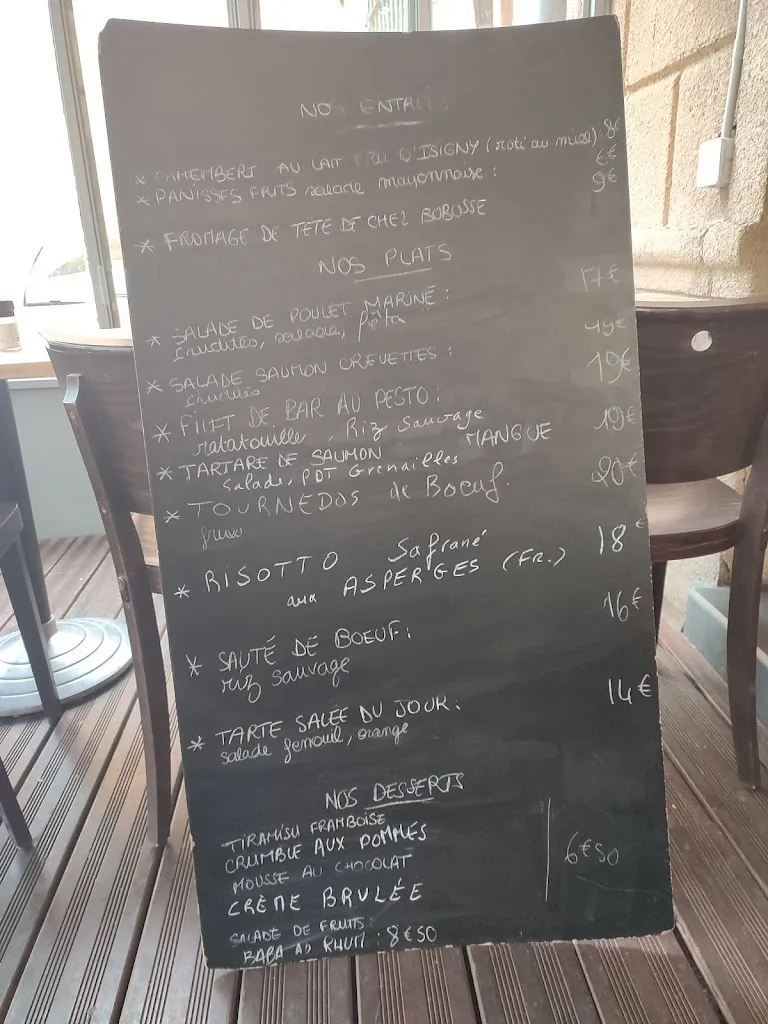 NOS ENTRÉES
* CAMEMBERT AU LAIT CRU D'ISIGNY (roti au miel): 8€
* PANISSES FRITS salade mayonnaise : 6€
* FROMAGE DE TETE DE CHEZ BOBOSSE 9€
NOS PLATS
* SALADE DE POULET MARINÉ : 17€
crudités, salade, pêta
* SALADE SAUMON CREVETTES :
crudités
* FILET DE BAR AU PESTO : 19€
ratatouille, Riz Sauvage
* TARTARE DE SAUMON MANGUE 19€
Salade, PDT Grenailles
* TOURNEDOS de Boeuf. 20€
* RISOTTO Safrané 18€
aux ASPERGES (FR.)
* SAUTÉ DE BOEUF : 16€
riz sauvage
* TARTE SALÉE DU JOUR : 14€
salade fenouil, orange
NOS DESSERTS
TIRAMISU FRAMBOISE
CRUMBLE AUX POMMES
MOUSSE AU CHOCOLAT 6€50
CRÈME BRULÉE
SALADE DE FRUITS :
BABA AU RHUM : 8€50